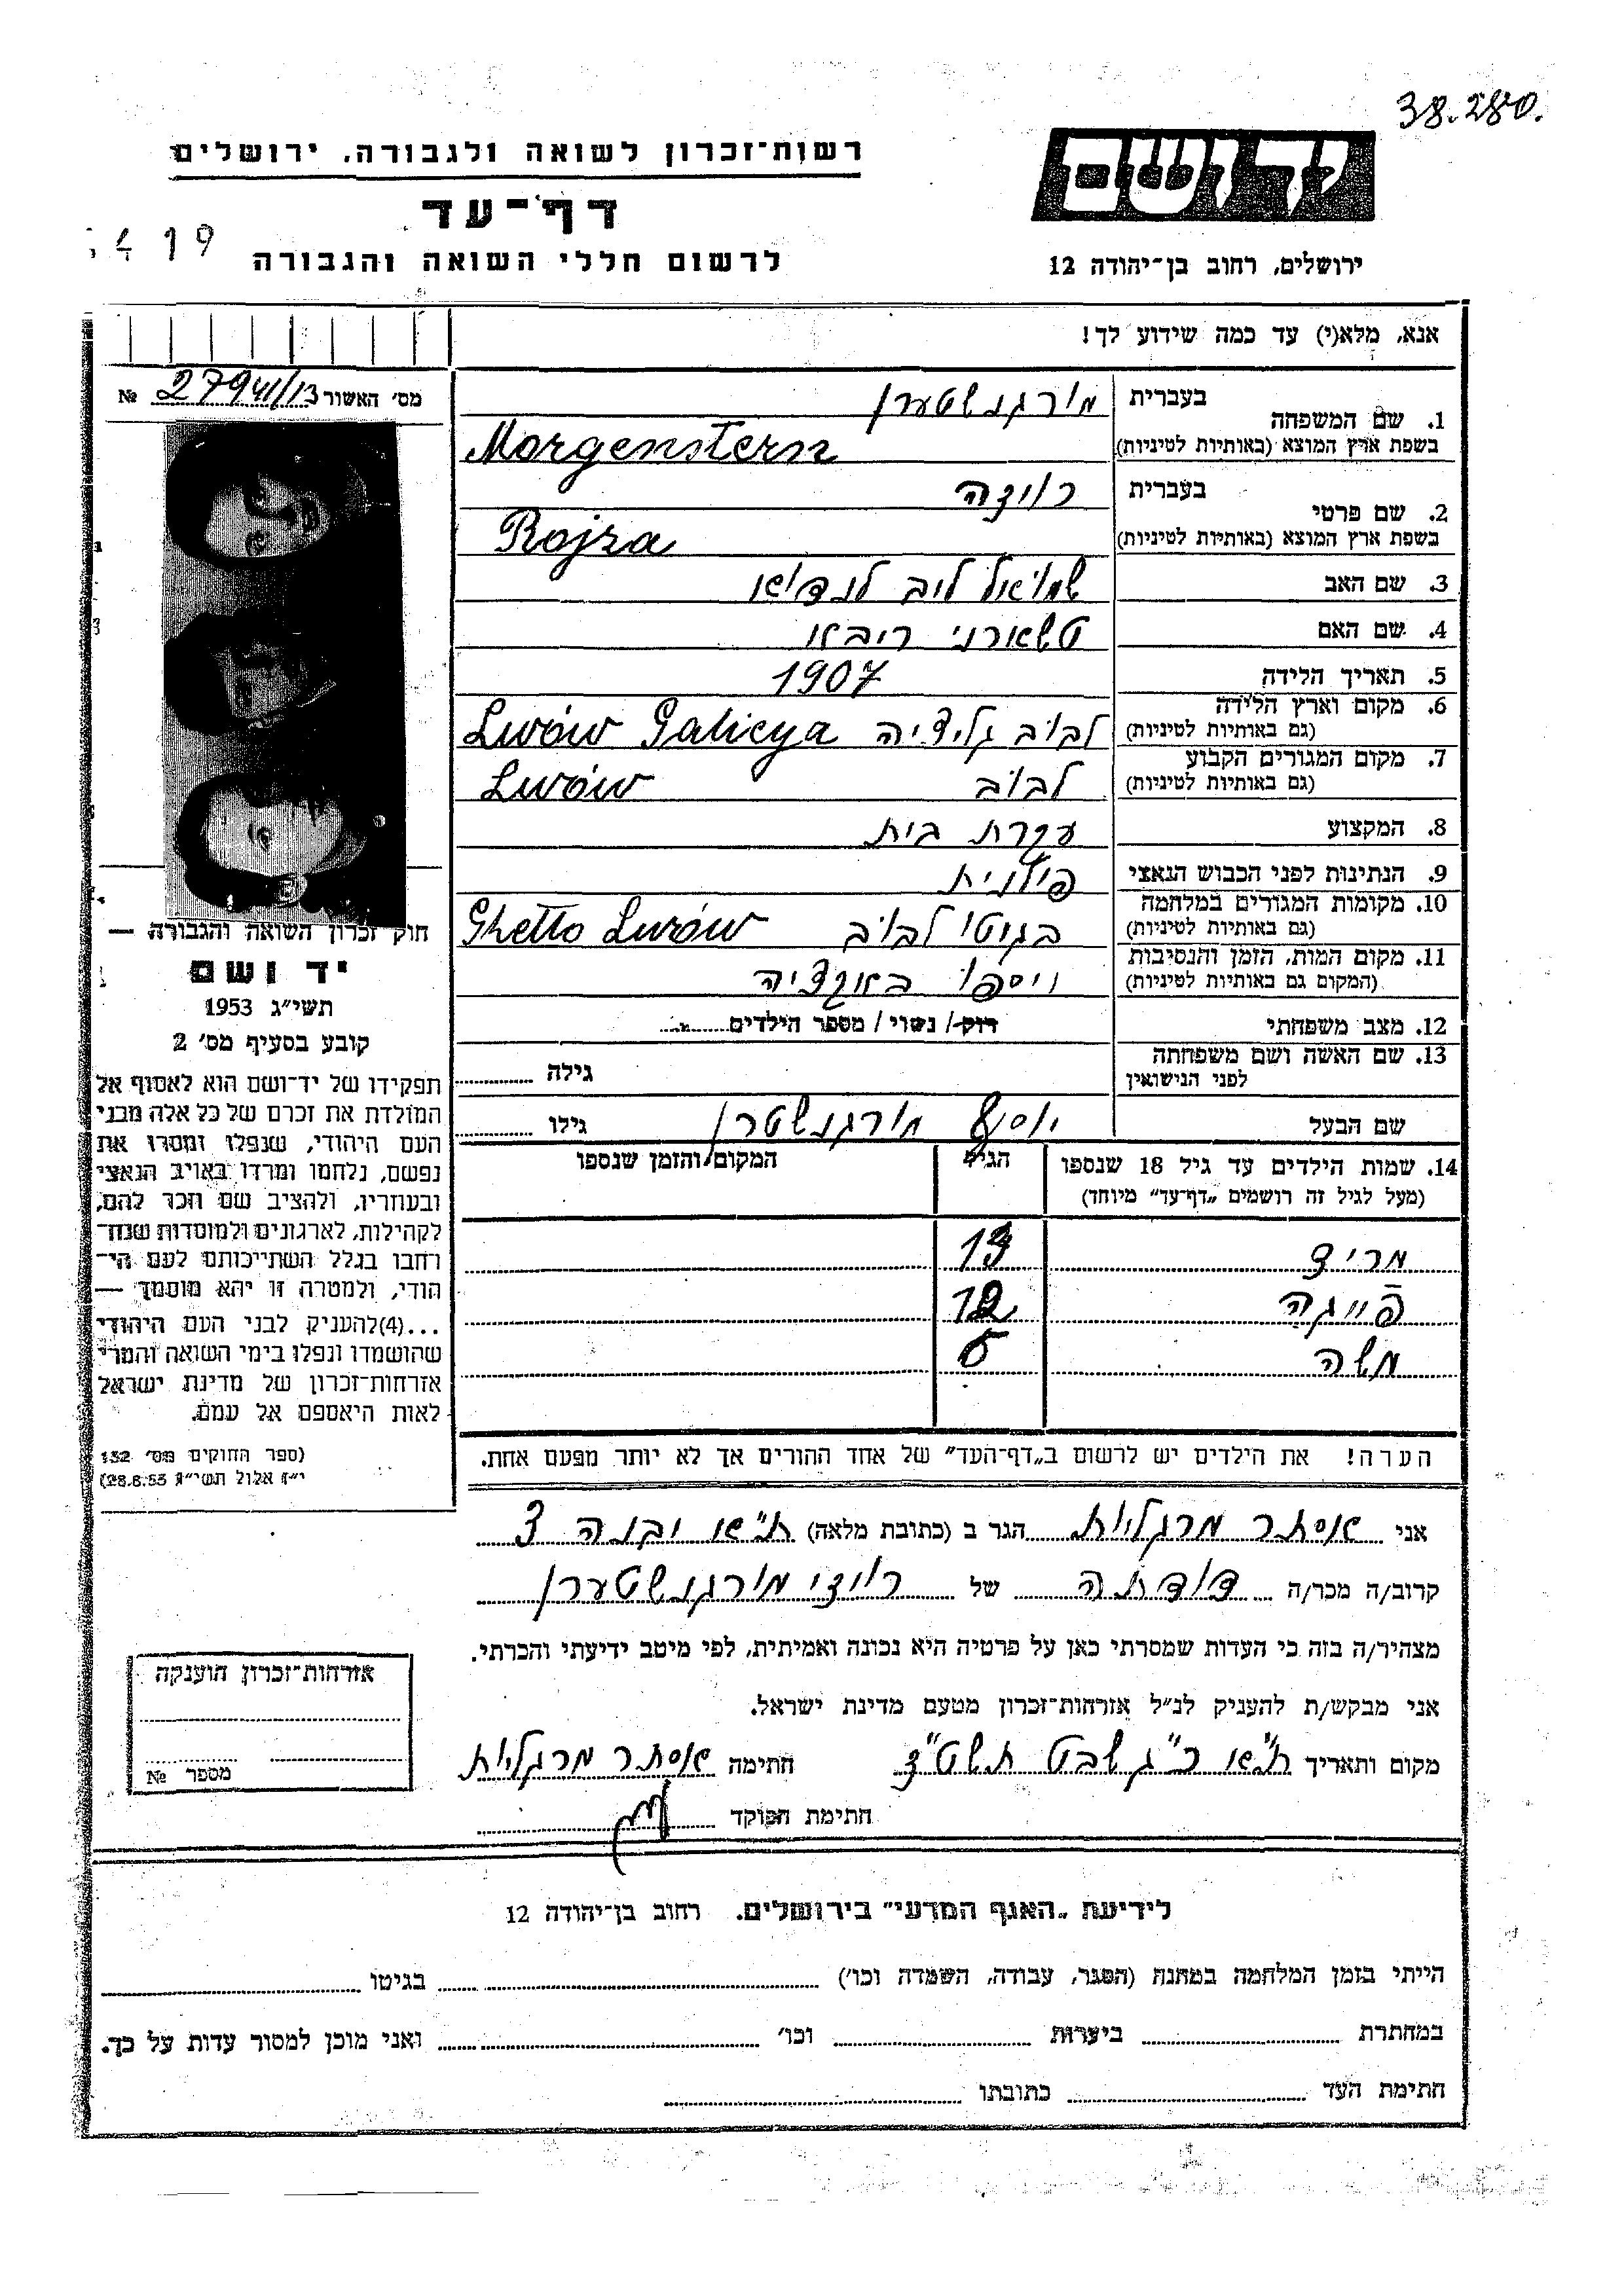 38.280.
ידושם
רשות־זכרון לשואה ולגבורה, ירושלים
דף־עד
ירושלים, רחוב בן־יהודה 12
לרשום חללי השואה והגבורה
419
אנא, מלא(י) עד כמה שידוע לך!
מס׳ האשור 27941/13 №
1. שם המשפחה
בעברית
מורגנשטערן
בשפת ארץ המוצא (באותיות לטיניות)
Morgenstern
2. שם פרטי
בעברית
רויזה
בשפת ארץ המוצא (באותיות לטיניות)
Rojza
3. שם האב
שמואל ליב לנדאו
4. שם האם
טשארני ריבא
5. תאריך הלידה
1907
6. מקום וארץ הלידה
(גם באותיות לטיניות)
לבוב גליציה Lwów Galicya
7. מקום המגורים הקבוע
(גם באותיות לטיניות)
לבוב Lwów
8. המקצוע
עקרת בית
9. הנתינות לפני הכבוש הנאצי
פולנית
10. מקומות המגורים במלחמה
(גם באותיות לטיניות)
בגיטו לבוב Ghetto Lwów
11. מקום המות, הזמן והנסיבות
(המקום גם באותיות לטיניות)
ניספו באקציה
12. מצב משפחתי
רוק / נשוי / מספר הילדים
13. שם האשה ושם משפחתה
לפני הנישואין
גילה
שם הבעל
יוסף מורגנשטרן
גילו
14. שמות הילדים עד גיל 18 שנספו
(מעל לגיל זה רושמים „דף־עד” מיוחד)
הגיל
המקום והזמן שנספו
13
פייגה 12
משה 5
הערה! את הילדים יש לרשום ב„דף־העד” של אחד ההורים אך לא יותר מפעם אחת.
חוק זכרון השואה והגבורה —
יד ושם
תשי״ג 1953
קובע בסעיף מס׳ 2
תפקידו של יד־ושם הוא לאסוף אל
המולדת את זכרם של כל אלה מבני
העם היהודי, שנפלו ומסרו את
נפשם, נלחמו ומרדו באויב הנאצי
ובעוזריו, ולהציב שם וזכר להם,
לקהילות, לארגונים ולמוסדות שנח־
רחבו בגלל השתייכותם לעם הי־
הודי, ולמטרה זו יהא מוסמך —
...(4)להעניק לבני העם היהודי
שהושמדו ונפלו בימי השואה והמרי
אזרחות־זכרון של מדינת ישראל
לאות היאספם אל עמם.
(ספר החוקים מס׳ 132
י״ז אלול תשי״ג 28.8.53)
אני אסתר מרגליות הגר ב (כתובת מלאה) ת״א יבנה
קרוב/ה מכר/ה דודתה של רויזי מורגנשטערן
מצהיר/ה בזה כי העדות שמסרתי כאן על פרטיה היא נכונה ואמיתית, לפי מיטב ידיעתי והכרתי.
אני מבקש/ת להעניק לנ״ל אזרחות־זכרון מטעם מדינת ישראל.
מקום ותאריך ת״א כ״ג שבט תשט״ז חתימה אסתר מרגליות
חתימת הפוקד
אזרחות־זכרון הוענקה
מספר №
לידיעת „האגף המדעי” בירושלים. רחוב בן־יהודה 12
הייתי בזמן המלחמה במחנה (הסגר, עבודה, השמדה וכו׳) בגיטו
במחתרת ביערות וכו׳ ואני מוכן למסור עדות על כך.
חתימת העד כתובתו